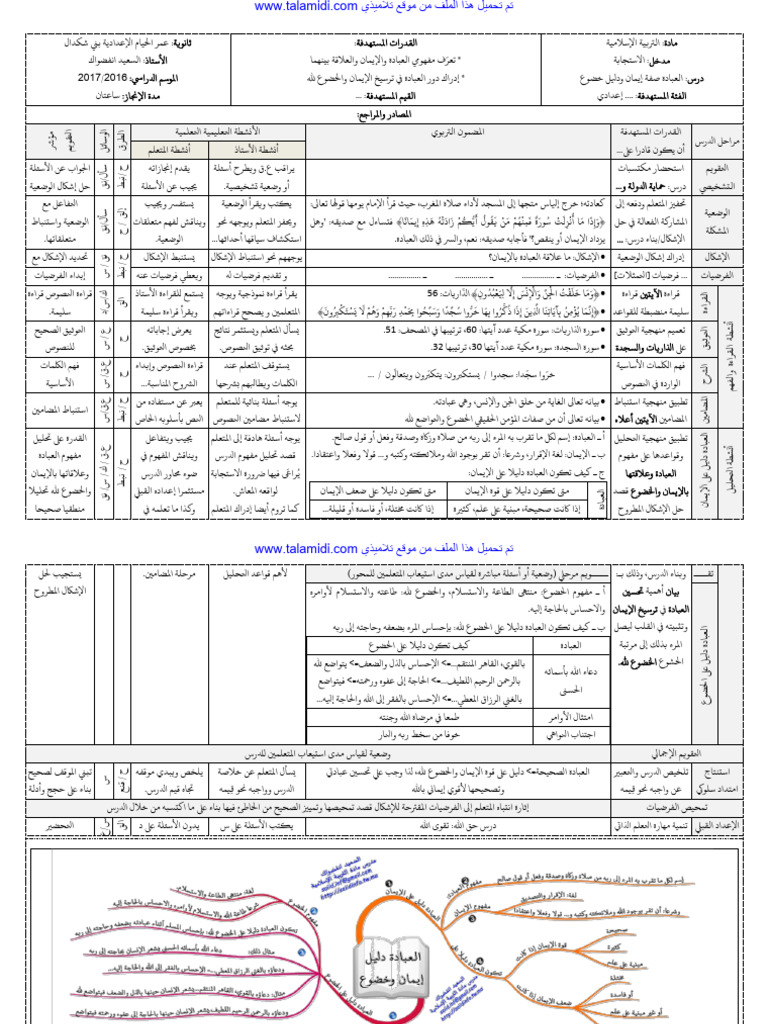 تم تحميل هذا الملف من موقع تلاميذي www.talamidi.com
مادة: التربية الإسلامية
مدخل: الاستجابة
درس: العبادة صفة إيمان ودليل خضوع
الفئة المستهدفة: .... إعدادي
القدرات المستهدفة:
* تعرف مفهومي العبادة والإيمان والعلاقة بينهما
* إدراك دور العبادة في ترسيخ الإيمان والخضوع لله
القيم المستهدفة: ...
ثانوية: عمر الخيام الإعدادية بني شكدال
الأستاذ: السعيد انفضواك
الموسم الدراسي: 2017/2016
مدة الإنجاز: ساعتان
المصادر والمراجع:
مراحل الدرس
القدرات المستهدفة
أن يكون قادرا على...
المضمون التربوي
الأنشطة التعليمية التعلمية
أنشطة الأستاذ
أنشطة المتعلم
الطرق
الوسائل
التقويم
مؤشر
التقويم التشخيصي
استحضار مكتسبات
درس: حماية الدولة و...
يراقب ع.ق ويطرح أسئلة
أو وضعية تشخيصية.
يقدم إنجازاته
يجيب عن الأسئلة
الجواب عن الأسئلة
حل إشكال الوضعية
الوضعية المشكلة
تحفيز المتعلم ودفعه إلى
المشاركة الفعالة في حل
الإشكال/بناء درس: ...
كعادته؛ خرج إلياس متجها إلى المسجد لأداء صلاة المغرب، حيث قرأ الإمام يومها قولها تعالى:
﴿وَإِذَا مَا أُنْزِلَتْ سُورَةٌ فَمِنْهُمْ مَنْ يَقُولُ أَيُّكُمْ زَادَتْهُ هَذِهِ إِيمَانًا﴾ فتساءل مع صديقه: "وهل
يزداد الإيمان أو ينقص؟" فأجابه صديقه: نعم، والسر في ذلك العبادة.
يكتب ويقرأ الوضعية
ويحفز المتعلم ويوجهه نحو
استكشاف سياقها أحداثها...
يستفسر ويجيب
ويناقش لفهم متعلقات
الوضعية.
التفاعل مع
الوضعية واستنباط
متعلقاتها.
الإشكال
إدراك إشكال الوضعية
•الإشكال: ما علاقة العبادة بالإيمان؟
يوجههم نحو استنباط الإشكال
يستنبط الإشكال
تحديد الإشكال مع
الفرضيات
... فرضيات [التمثلات]
•الفرضيات:
و تقديم فرضيات له
ويعطي فرضيات عنه
إبداء الفرضيات
أنشطة القراءة والفهم
القراءة
قراءة الآيتين قراءة
سليمة منضبطة للقواعد
• ﴿وَمَا خَلَقْتُ الْجِنَّ وَالْإِنْسَ إِلَّا لِيَعْبُدُونِ﴾ الذاريات: 56
• ﴿إِنَّمَا يُؤْمِنُ بِآيَاتِنَا الَّذِينَ إِذَا ذُكِّرُوا بِهَا خَرُّوا سُجَّدًا وَسَبَّحُوا بِحَمْدِ رَبِّهِمْ وَهُمْ لَا يَسْتَكْبِرُونَ﴾
يقرأ قراءة نموذجية ويوجه
المتعلمين و يصحح قراءاتهم
يستمع للقراءة الأستاذ
ويقرأ قراءة سليمة
قراءة النصوص قراءة
سليمة.
التوثيق
تعميم منهجية التوثيق
على الذاريات والسجدة
• سورة الذاريات: سورة مكية عدد آيتها: 60، ترتيبها في المصحف: 51.
• سورة السجدة: سورة مكية عدد آيتها 30، ترتيبها 32.
يسأل المتعلم ويستثمر نتائج
بحثه في توثيق النصوص.
يعرض إجاباته
بخصوص التوثيق.
التوثيق الصحيح
للنصوص
الشرح
فهم الكلمات الأساسية
الواردة في النصوص
خرّوا سجدا: سجدوا / يستكبرون: يتكبّرون ويتعالون / ...
يستوقف المتعلم عند
الكلمات ويطالبهم بشرحها
قراءة النصوص وإبداء
الشروح المناسبة...
فهم الكلمات
الأساسية
المضامين
تطبيق منهجية استنباط
المضامين الآيتين أعلاه
• بيانه تعالى الغاية من خلق الجن والإنس، وهي عبادته.
• بيانه تعالى أن من صفات المؤمن الحقيقي الخضوع والتواضع لله
يوجه أسئلة بنائية للمتعلم
لاستنباط مضامين النصوص
يعبر عن مستفاده من
النص بأسلوبه الخاص
استنباط المضامين
أنشطة التحليل
العبادة دليل على الإيمان
تطبيق منهجية التحليل
وقواعدها على مفهوم
العبادة وعلاقتها
بالإيمان والخضوع قصد
حل الإشكال المطروح
أ ـ العبادة: إسم لكل ما تقرب به المرء إلى ربه من صلاة وزكاة وصدقة وفعل أو قول صالح.
ب ـ الإيمان: لغة الإقرار، وشرعا: أن تقر بوجود الله وملائكته وكتبه و... قولا وفعلا واعتقادا.
ج ـ كيف تكون العبادة دليلا على الإيمان:
العبادة
متى تكون دليلا على قوة الإيمان
متى تكون دليلا على ضعف الإيمان
إذا كانت صحيحة، مبنية على علم، كثيرة
إذا كانت مختلة، أو فاسدة أو قليلة...
يوجه أسئلة هادفة إلى المتعلم
قصد تحليل مفهوم الدرس
يُراعى فيها ضرورة الاستجابة
لواقعه المعاش.
كما تروم أيضا إدراك المتعلم
يجيب ويتفاعل
ويناقش المفهوم في
ضوء محاور الدرس
مستثمرا إعداده القبلي
وكذا ما تعلمه في
القدرة على تحليل
مفهوم العبادة
وعلاقاتها بالإيمان
والخضوع لله تحليلا
منطقيا صحيحا
تم تحميل هذا الملف من موقع تلاميذي www.talamidi.com
العبادة دليل على الخضوع
وبناء الدرس، وذلك بـ
بيان أهمية تحسين
العبادة في ترسيخ الإيمان
وتثبيته في القلب ليصل
المرء بذلك إلى مرتبة
الخشوع الخضوع لله.
ـــويم مرحلي (وضعية أو أسئلة مباشرة لقياس مدى استيعاب المتعلمين للمحور)
أ ـ مفهوم الخضوع: منتهى الطاعة والاستسلام، والخضوع لله: طاعته والاستسلام لأوامره
والاحساس بالحاجة إليه.
ب ـ كيف تكون العبادة دليلا على الخضوع لله: بإحساس المرء بضعفه وحاجته إلى ربه
العبادة
كيف تكون دليلا على الخضوع
دعاء الله بأسمائه
الحسنى
بالقوي، القاهر المنتقم...=> الإحساس بالذل والضعف=> يتواضع لله
بالرحمن الرحيم اللطيف...=> الحاجة إلى عفوه ورحمته=> فيتواضع
بالغني الرزاق المعطي...=> الإحساس بالفقر إلى الله والحاجة إليه...
امتثال الأوامر
طمعا في مرضاة الله وجنته
اجتناب النواهي
خوفا من سخط ربه والنار
لأهم قواعد التحليل
مرحلة المضامين.
يستجيب لحل
الإشكال المطروح
التقويم الإجمالي
وضعية لقياس مدى استيعاب المتعلمين للدرس
استنتاج
امتداد سلوكي
تلخيص الدرس والتعبير
عن واجبه نحو قيمه
العبادة الصحيحة=> دليل على قوة الإيمان والخضوع لله، لذا وجب علي تحسين عبادتي
وتصحيحها لأقوي إيماني بالله
يسأل المتعلم عن خلاصة
الدرس وواجبه نحو قيمه
يلخص ويبدي موقفه
تجاه قيم الدرس.
تبني الموقف لصحيح
بناء على حجج وأدلة
تمحيص الفرضيات
إثارة انتباه المتعلم إلى الفرضيات المقترحة للإشكال قصد تمحيصها وتمييز الصحيح من الخاطئ فيها بناء على ما اكتسبه من خلال الدرس
الإعداد القبلي
تنمية مهارة التعلم الذاتي
درس حق الله: تقوى الله
يكتب الأسئلة على س
يدون الأسئلة على د
التحضير
العبادة دليل
إيمان وخضوع
العبادة دليل على الإيمان
مفهوم العبادة
إسم لكل ما تقرب به المرء إلى ربه من صلاة وزكاة وصدقة وفعل أو قول صالح
مفهوم الإيمان
لغة: الإقرار والتصديق
وشرعا: أن تقر بوجود الله وملائكته وكتبه و... قولا وفعلا واعتقادا
تكون العبادة دليلا على الإيمان
قوة الإيمان إذا كانت
صحيحة
كثيرة
مبنية على علم
ضعف الإيمان إذا كانت
مختلة
أو فاسدة
أو غير مبنية على علم
العبادة دليل على الخضوع
مفهوم الخضوع
لغة: منتهى الطاعة والاستسلام